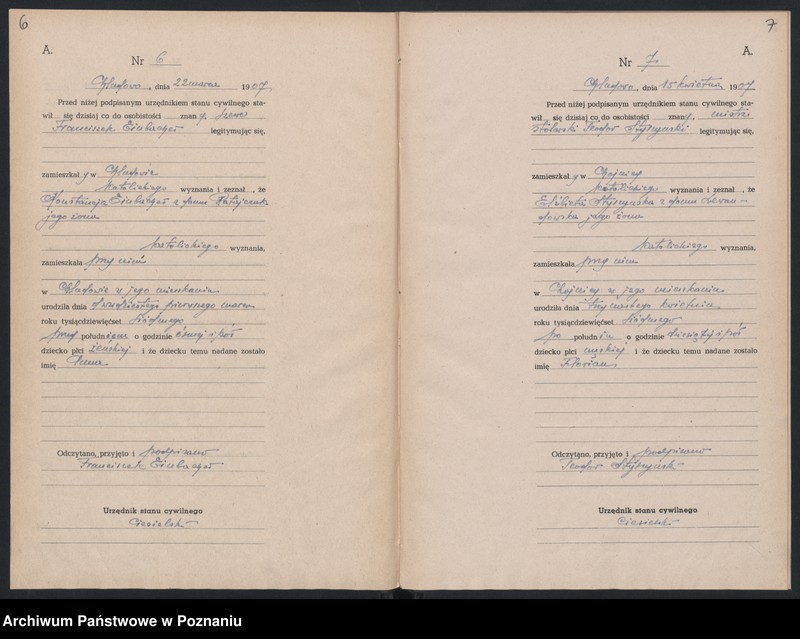 6
A.
Nr 6
, dnia 22 marca 1907
Przed niżej podpisanym urzędnikiem stanu cywilnego sta-
wił się dzisiaj co do osobistości znany,
Franciszek legitymując się,
zamieszkały w
katolickiego wyznania i zeznał, że
Konstancja z domu
jego żona
katolickiego wyznania,
zamieszkała przy nim
w w jego mieszkaniu
urodziła dnia dwudziestego pierwszego marca
roku tysiącdziewięćset siódmego
przed południem o godzinie i pół
dziecko płci żeńskiej i że dziecku temu nadane zostało
imię Anna
Odczytano, przyjęto i podpisano
Franciszek
Urzędnik stanu cywilnego
Ciesielski
7
A.
Nr 7
, dnia 15 kwietnia 1907
Przed niżej podpisanym urzędnikiem stanu cywilnego sta-
wił się dzisiaj co do osobistości znany, mistrz
stolarski Teodor legitymując się,
zamieszkały w Chojnicy
katolickiego wyznania i zeznał, że
Elżbieta z domu Lewan-
dowska jego żona
katolickiego wyznania,
zamieszkała przy nim
w Chojnicy w jego mieszkaniu
urodziła dnia kwietnia
roku tysiącdziewięćset siódmego
po południu o godzinie dziesiątej i pół
dziecko płci męskiej i że dziecku temu nadane zostało
imię Florian
Odczytano, przyjęto i podpisano
Teodor
Urzędnik stanu cywilnego
Ciesielski
Archiwum Państwowe w Poznaniu